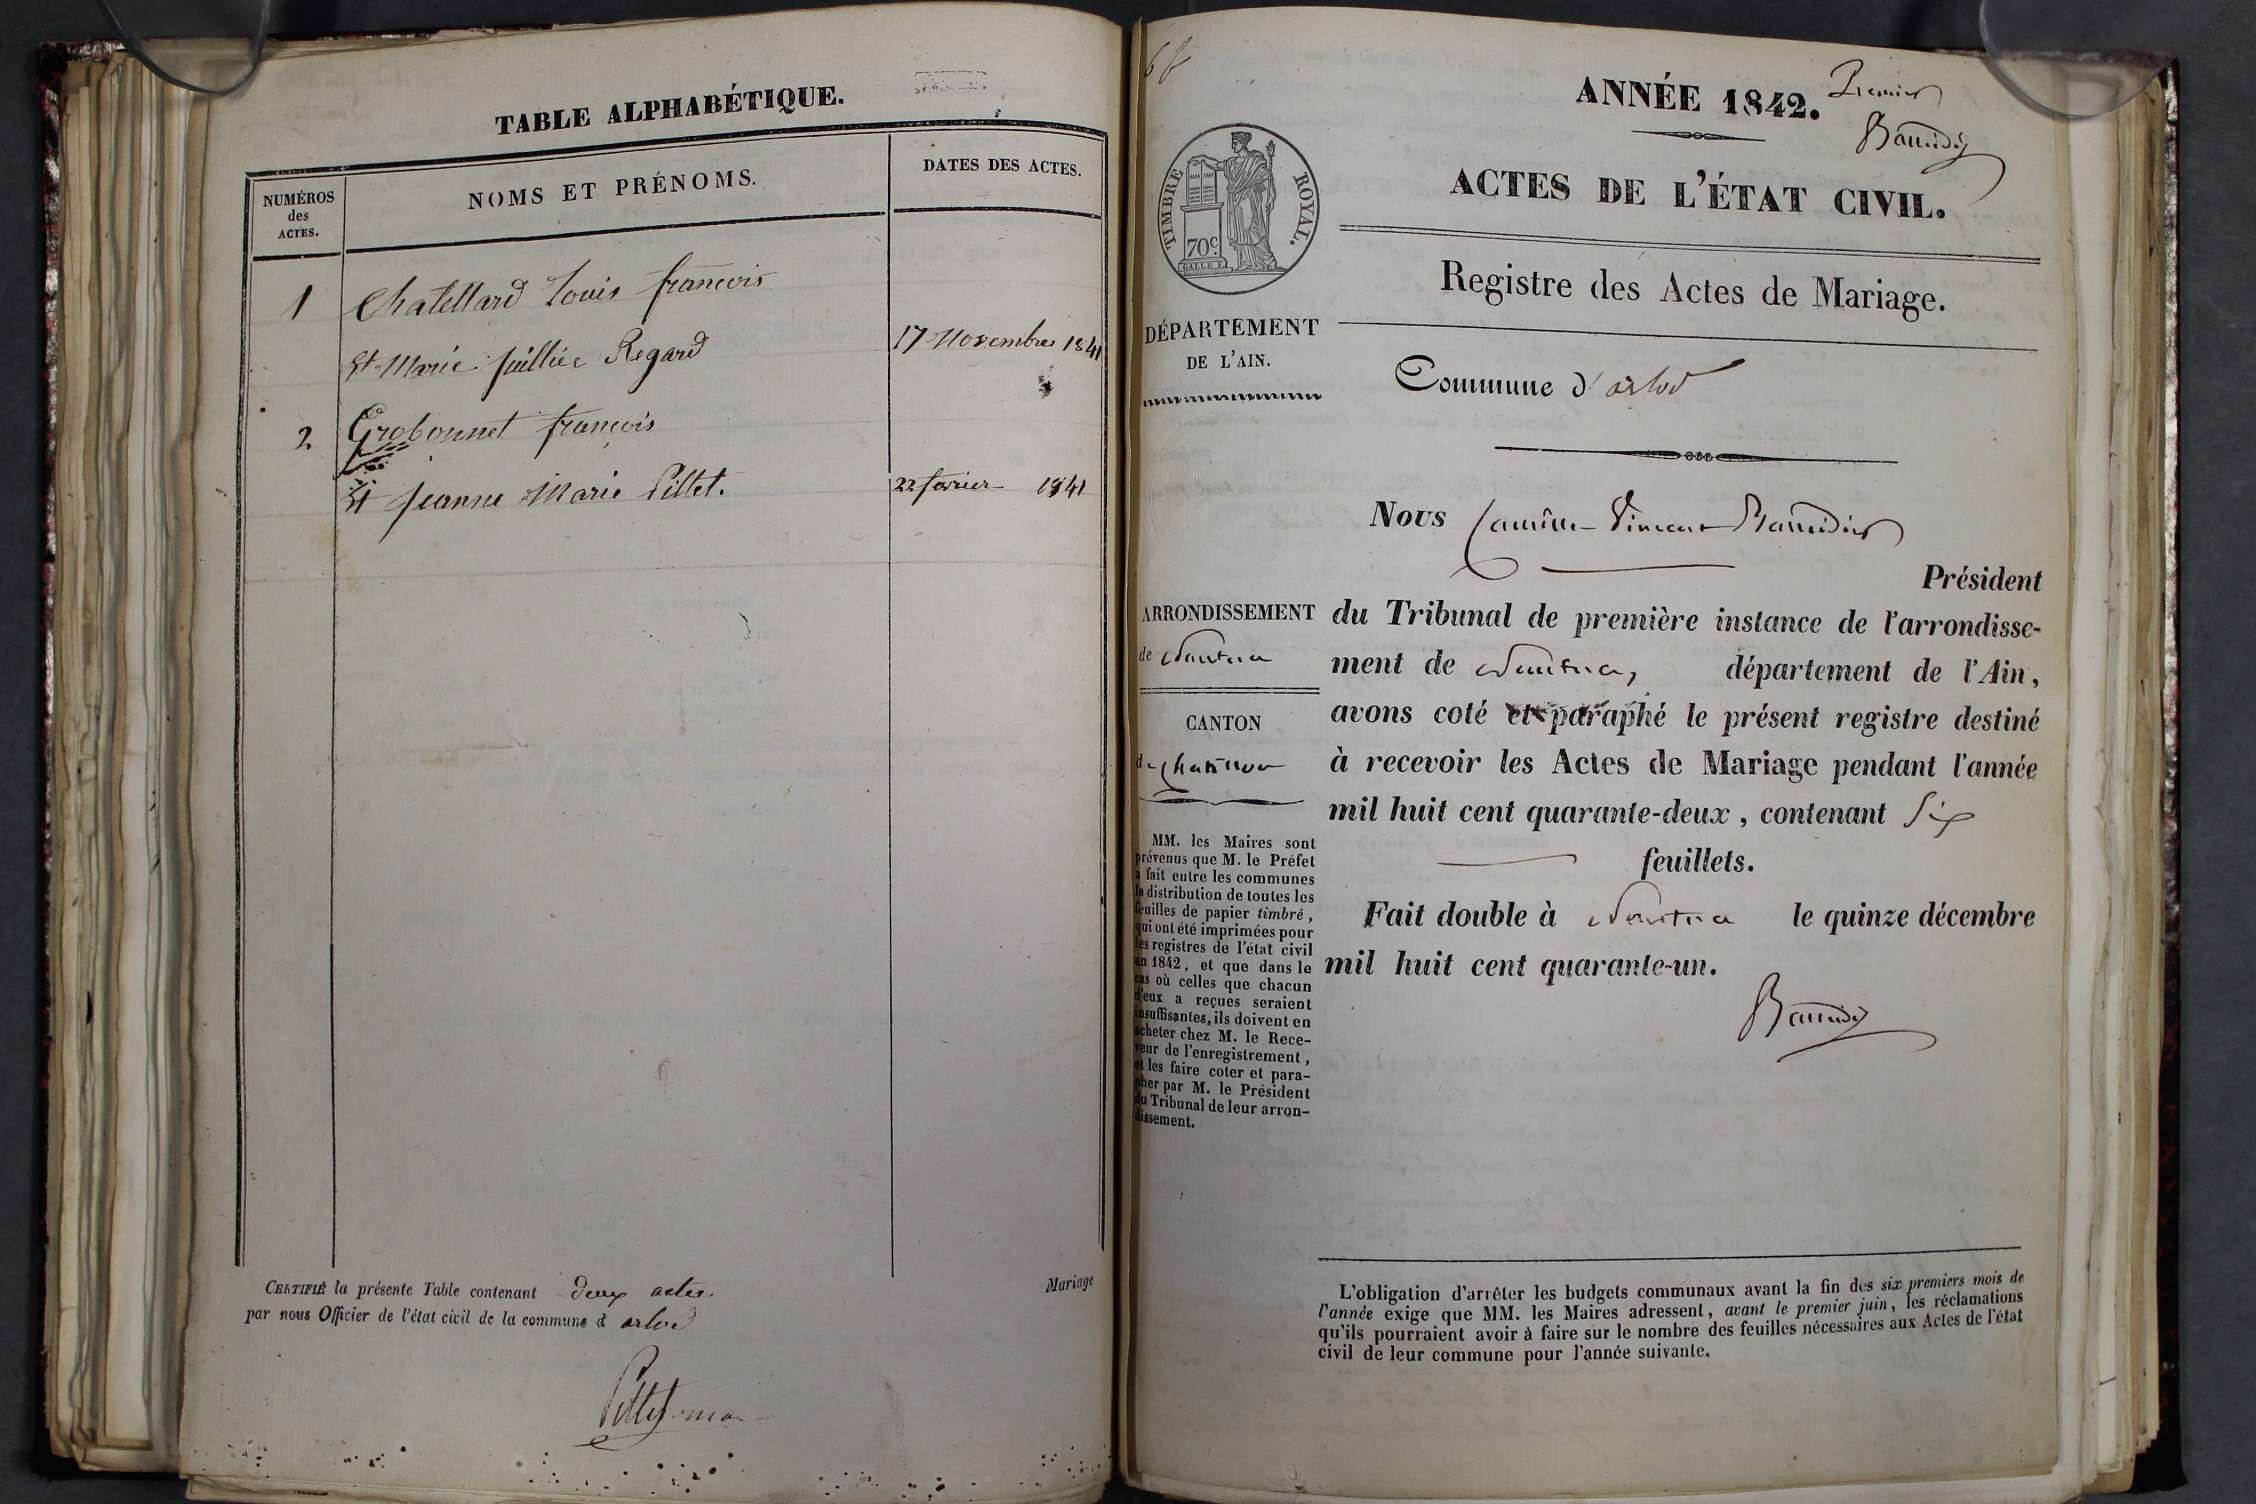 TABLE ALPHABÉTIQUE.
NUMÉROS
des
ACTES.
NOMS ET PRÉNOMS.
DATES DES ACTES.
1 Chatellard Louis françois
et Marie juillie Regard 17 Novembre 1841
2 Grobonnet françois
et jeanne Marie Pittet. 22 favrier 1841
CERTIFIÉ la présente Table contenant deux actes
par nous Officier de l'état civil de la commune d arlod
Mariage
68
ANNÉE 1842.
Premier
ACTES DE L'ÉTAT CIVIL.
Registre des Actes de Mariage.
TIMBRE ROYAL.
70c.
GALLE F.
DÉPARTEMENT
DE L'AIN.
Commune d'arlod
ARRONDISSEMENT
de Nantua
CANTON
de Chatillon
MM. les Maires sont
prévenus que M. le Préfet
a fait entre les communes
la distribution de toutes les
feuilles de papier timbré,
qui ont été imprimées pour
les registres de l'état civil
en 1842, et que dans le
cas où celles que chacun
d'eux a reçues seraient
insuffisantes, ils doivent en
acheter chez M. le Rece-
veur de l'enregistrement,
et les faire coter et para-
pher par M. le Président
du Tribunal de leur arron-
dissement.
Nous Camille Vincent
Président
du Tribunal de première instance de l'arrondisse-
ment de Nantua, département de l'Ain,
avons coté et paraphé le présent registre destiné
à recevoir les Actes de Mariage pendant l'année
mil huit cent quarante-deux, contenant Six
feuillets.
Fait double à Nantua le quinze décembre
mil huit cent quarante-un.
L'obligation d'arrêter les budgets communaux avant la fin des six premiers mois de
l'année exige que MM. les Maires adressent, avant le premier juin, les réclamations
qu'ils pourraient avoir à faire sur le nombre des feuilles nécessaires aux Actes de l'état
civil de leur commune pour l'année suivante.